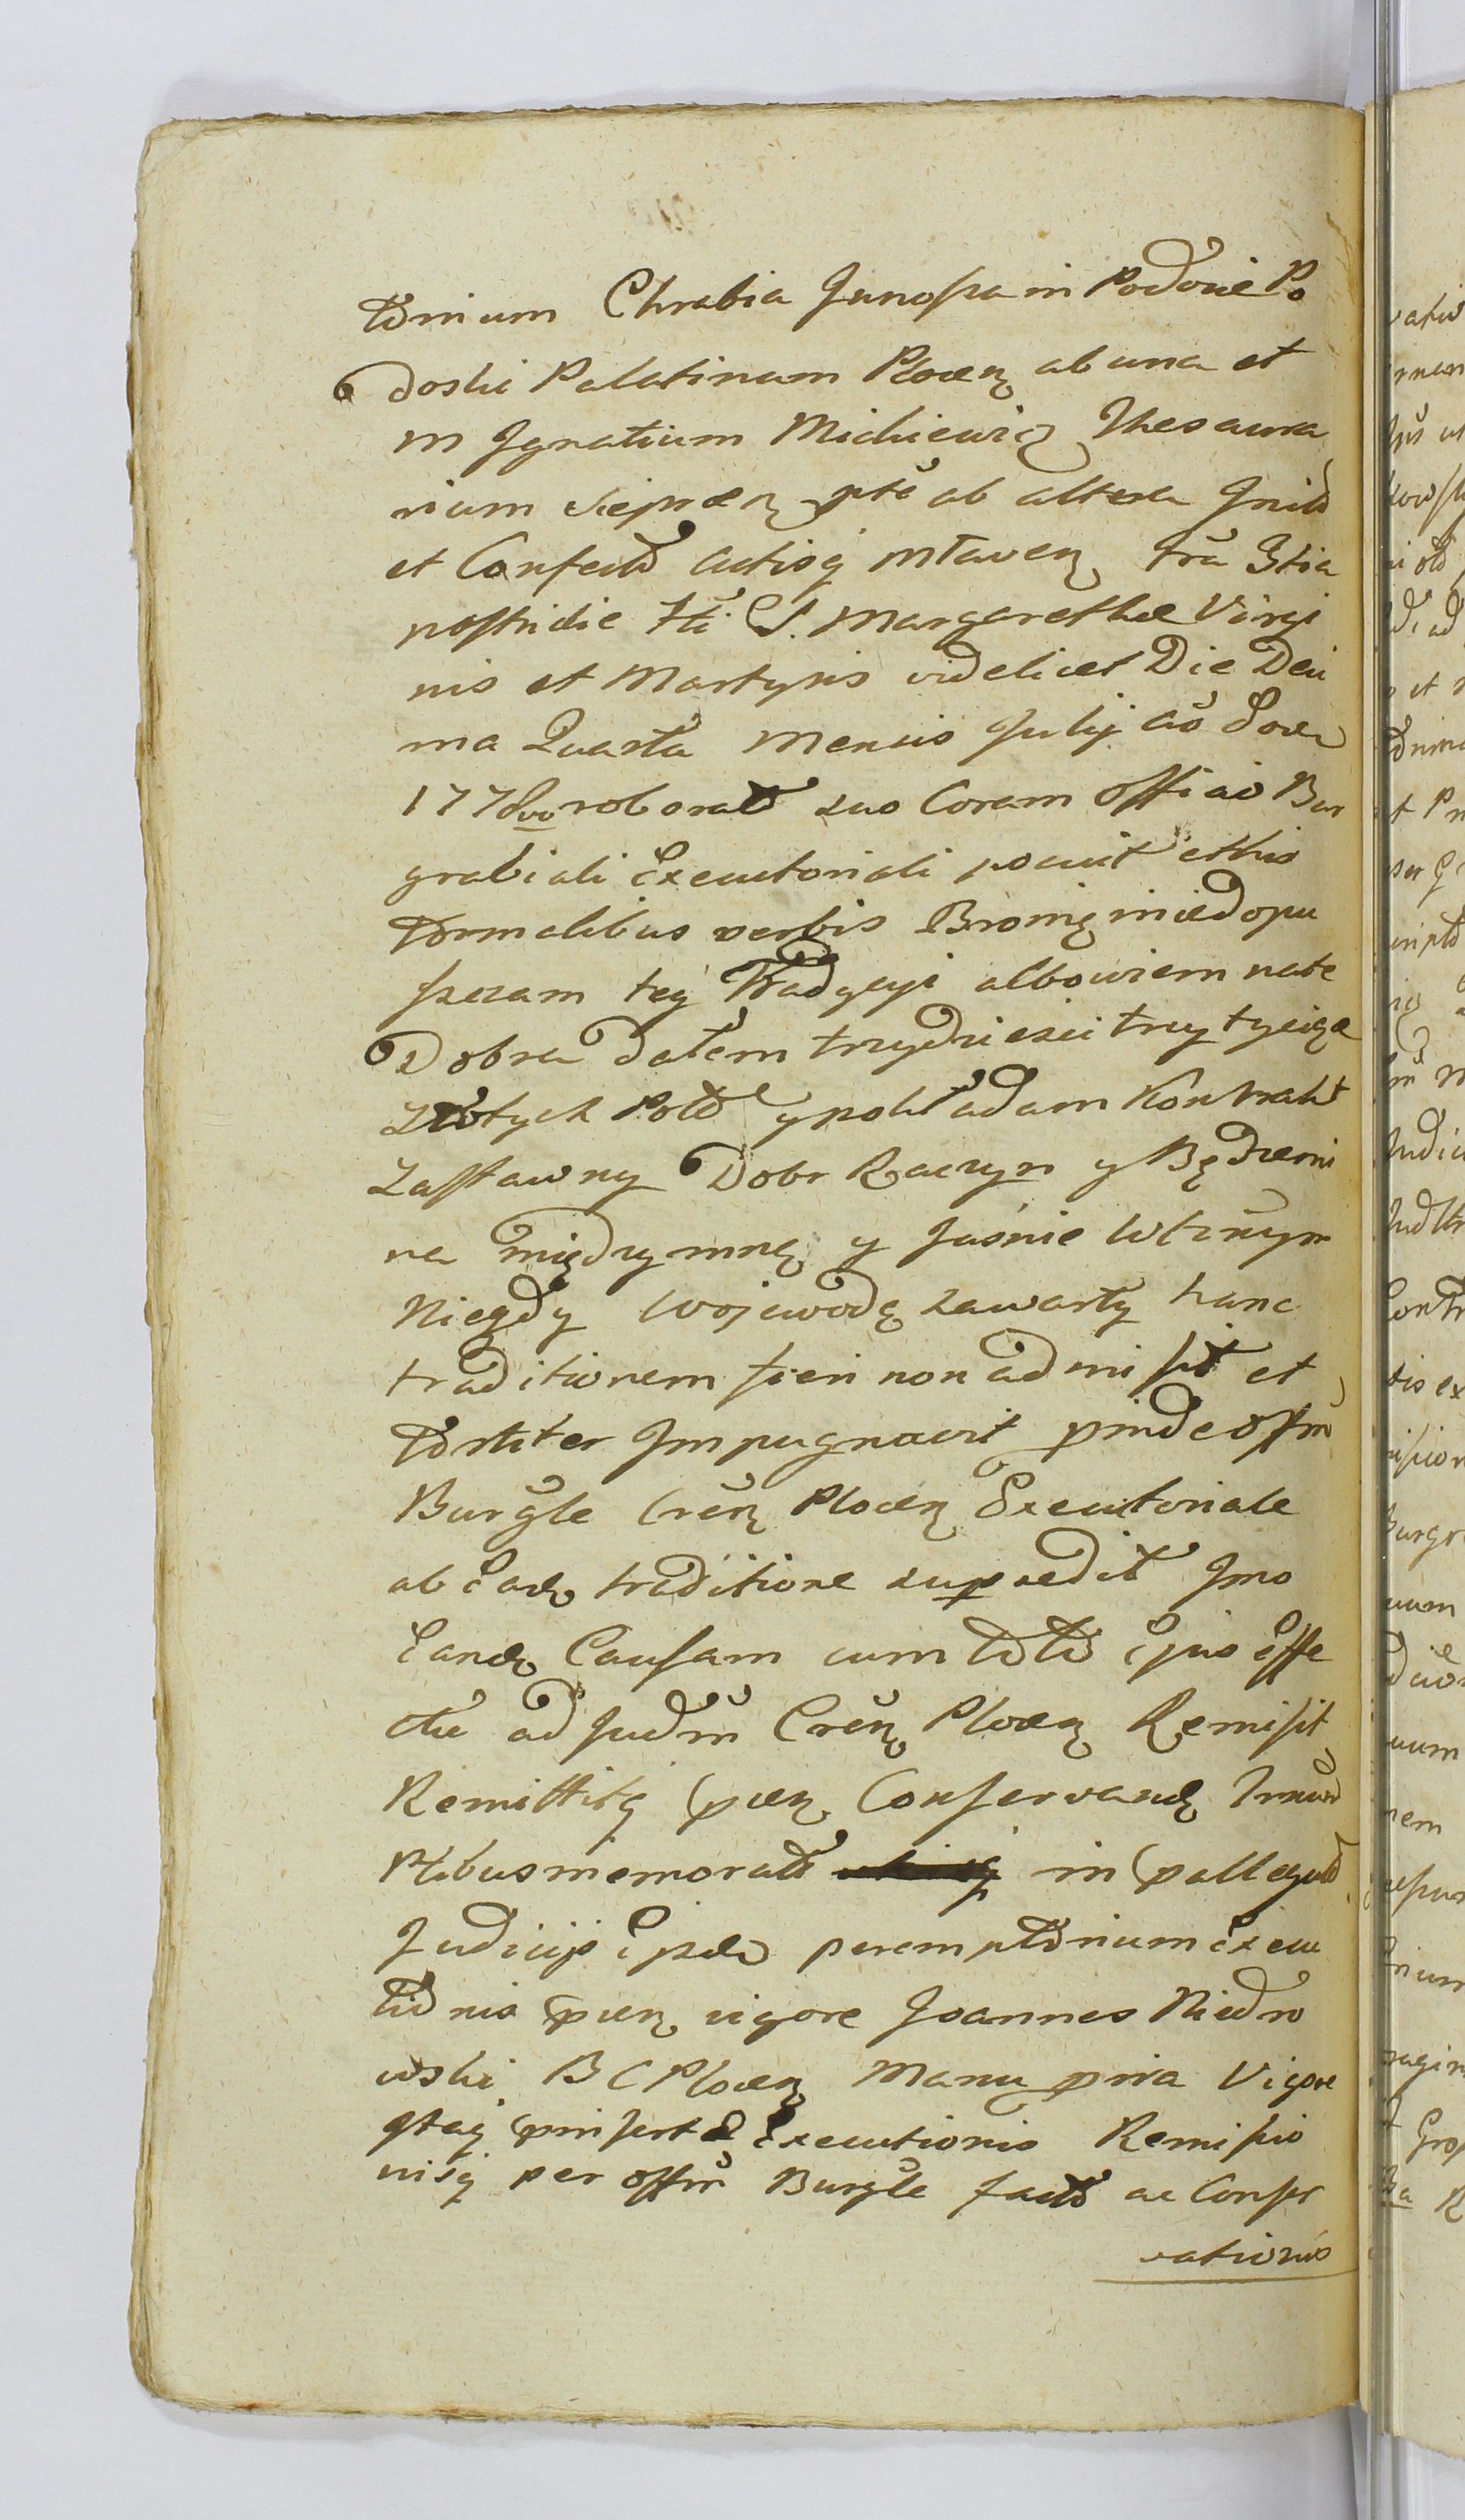 tonium Chrabia Junosza in Podosie Po
doski Palatinum Plocen ab una et
m Ignatium Michiewicz Thesaura
rium Sieprcen pte ab altera Init
et Confecto Actisq Mlaven fra 3tia
postridie fti S. Margarethæ Virgi
nis et Martyris videlicet Die Deci
ma Quarta Mensis Julij Aō
1778vo roborat suo Coram Officio Bur
grabiali Executoriali posuit et his
formalibus verbis Bronię nie dopu
szczam tey Tradycyi albowiem na te
Dobra dałem trzydzieści trzy tysiące
złotych Pold y pokładam Kontrakt
zastawny Dobr Raczyn y Będzemi
na między mną y Jaśnie Wlżnym
Niegdy Wojewodą zawarty hanc
traditionem fieri non admisit et
fortiter Impugnavit pinde Offm
Burgle Cren Plocen Executoriale
ab Eadē traditione supsedit Imo
Eandē Causam cum toto Ejus effe
ctu ad Judm Cren Plocen Remisit
Remittitq pcen Conservand Tmnū
Ptibus memorat in pallegat
Judicijs Epsēd peremptorium Execu
tionis pcen vigore Joannes Niedro
wski B C Plocen Manu pria Vigore
qtaq pinsert Executionis Remissio
nisq per offm Burgle fact ac Conser
vationis